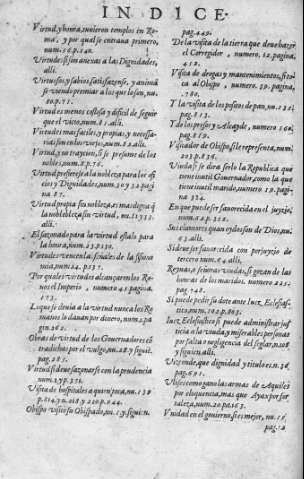 INDICE
Virtud, y honra, tuuieron templos en Ro-
ma, y por qual se entraua primero,
num.16.p.140.
Virtudes si son anexas a las Dignidades,
alli.
Virtuosos, y sabios, satisfazense, y anima
se viendo premiar a los que lo son, nu.
80.p.72.
Virtud es menos costosa y dificil de seguir
que el vicio, num.81.alli.
Virtudes mas faciles, y propias, y necessa-
rias, son en los viejos, num.82.alli.
Virtud, y no traycion, si se presume de los
nobles, num.
Virtud prefierese a la nobleza para los ofi
cios y Dignidades, num.30 y 32 pagi
na 87.
Virtud propia sou nobleza, es mas digna q
la nobleza sin virtud, nu.
alli.
El afamado para la virtud esta lo para
la honra, num.
Virtudes
num.24.p.137.
Por quales virtudes alcançaron los Ro-
nos el Imperio, numero 45. pagina
173.
Lo que se deuia a la virtud nunca los Ro
manos lo dauan por dinero, num.2 pa
gin.262.
Obras de virtud de los Gouernadores con
tradichas por el vulgo, nu.28. y siguie.
pag.285.
Virtud si deue sazonarse con la prudencia
num.19.p.371.
Visita de hospitales a quien toca, nu.130
Obispo visite su Obispado, nu.1. y siguien.
pag.449.
De la visita de la tierra que deue hazer
el Corregidor, numero, 12. pagina,
412.
Visita de drogas y mantenimientos, si to
ca al Obispo, numero. 59. pagina,
780.
Y la visita de los pesos de pan, nu.
alli.
Y de los presos y Alcayde, numero 160.
pag.819.
Visitador de Obispo, si le representa, num.
203.p.836.
Viuda si se dira serlo la Republica que
tiene inutil Gouernador, como la que
tiene inutil marido, numero 19. pagi
na 324.
En que puede ser fauorecida en el juyzio,
num.42.p.322.
Sus clamores quan oydos son de Dios, nu.
63.alli.
Si deue ser fauorecida con perjuyzio de
tercero num.64.alli.
Reynas, o señoras viudas, si gozan de las
honras de los maridos. numero 225.
pag.748.
Si puede pedir su dote ante Iuez Ecclesias-
tico, num.102.p.803.
Iuez Ecclesiastico si puede administrar jus
ticia a la viuda, y miserables personas
por falta o negligencia del seglar, n.108
y siguien. alli.
Vizconde, que dignidad y titulo es n.36.
pag.691.
Ulises como gano las armas de Aquiles
por eloquencia, mas que Ayax por for
taleza, num.20.p.163.
Vnidad en el gouierno, si es mejor, nu.16.
pag.2